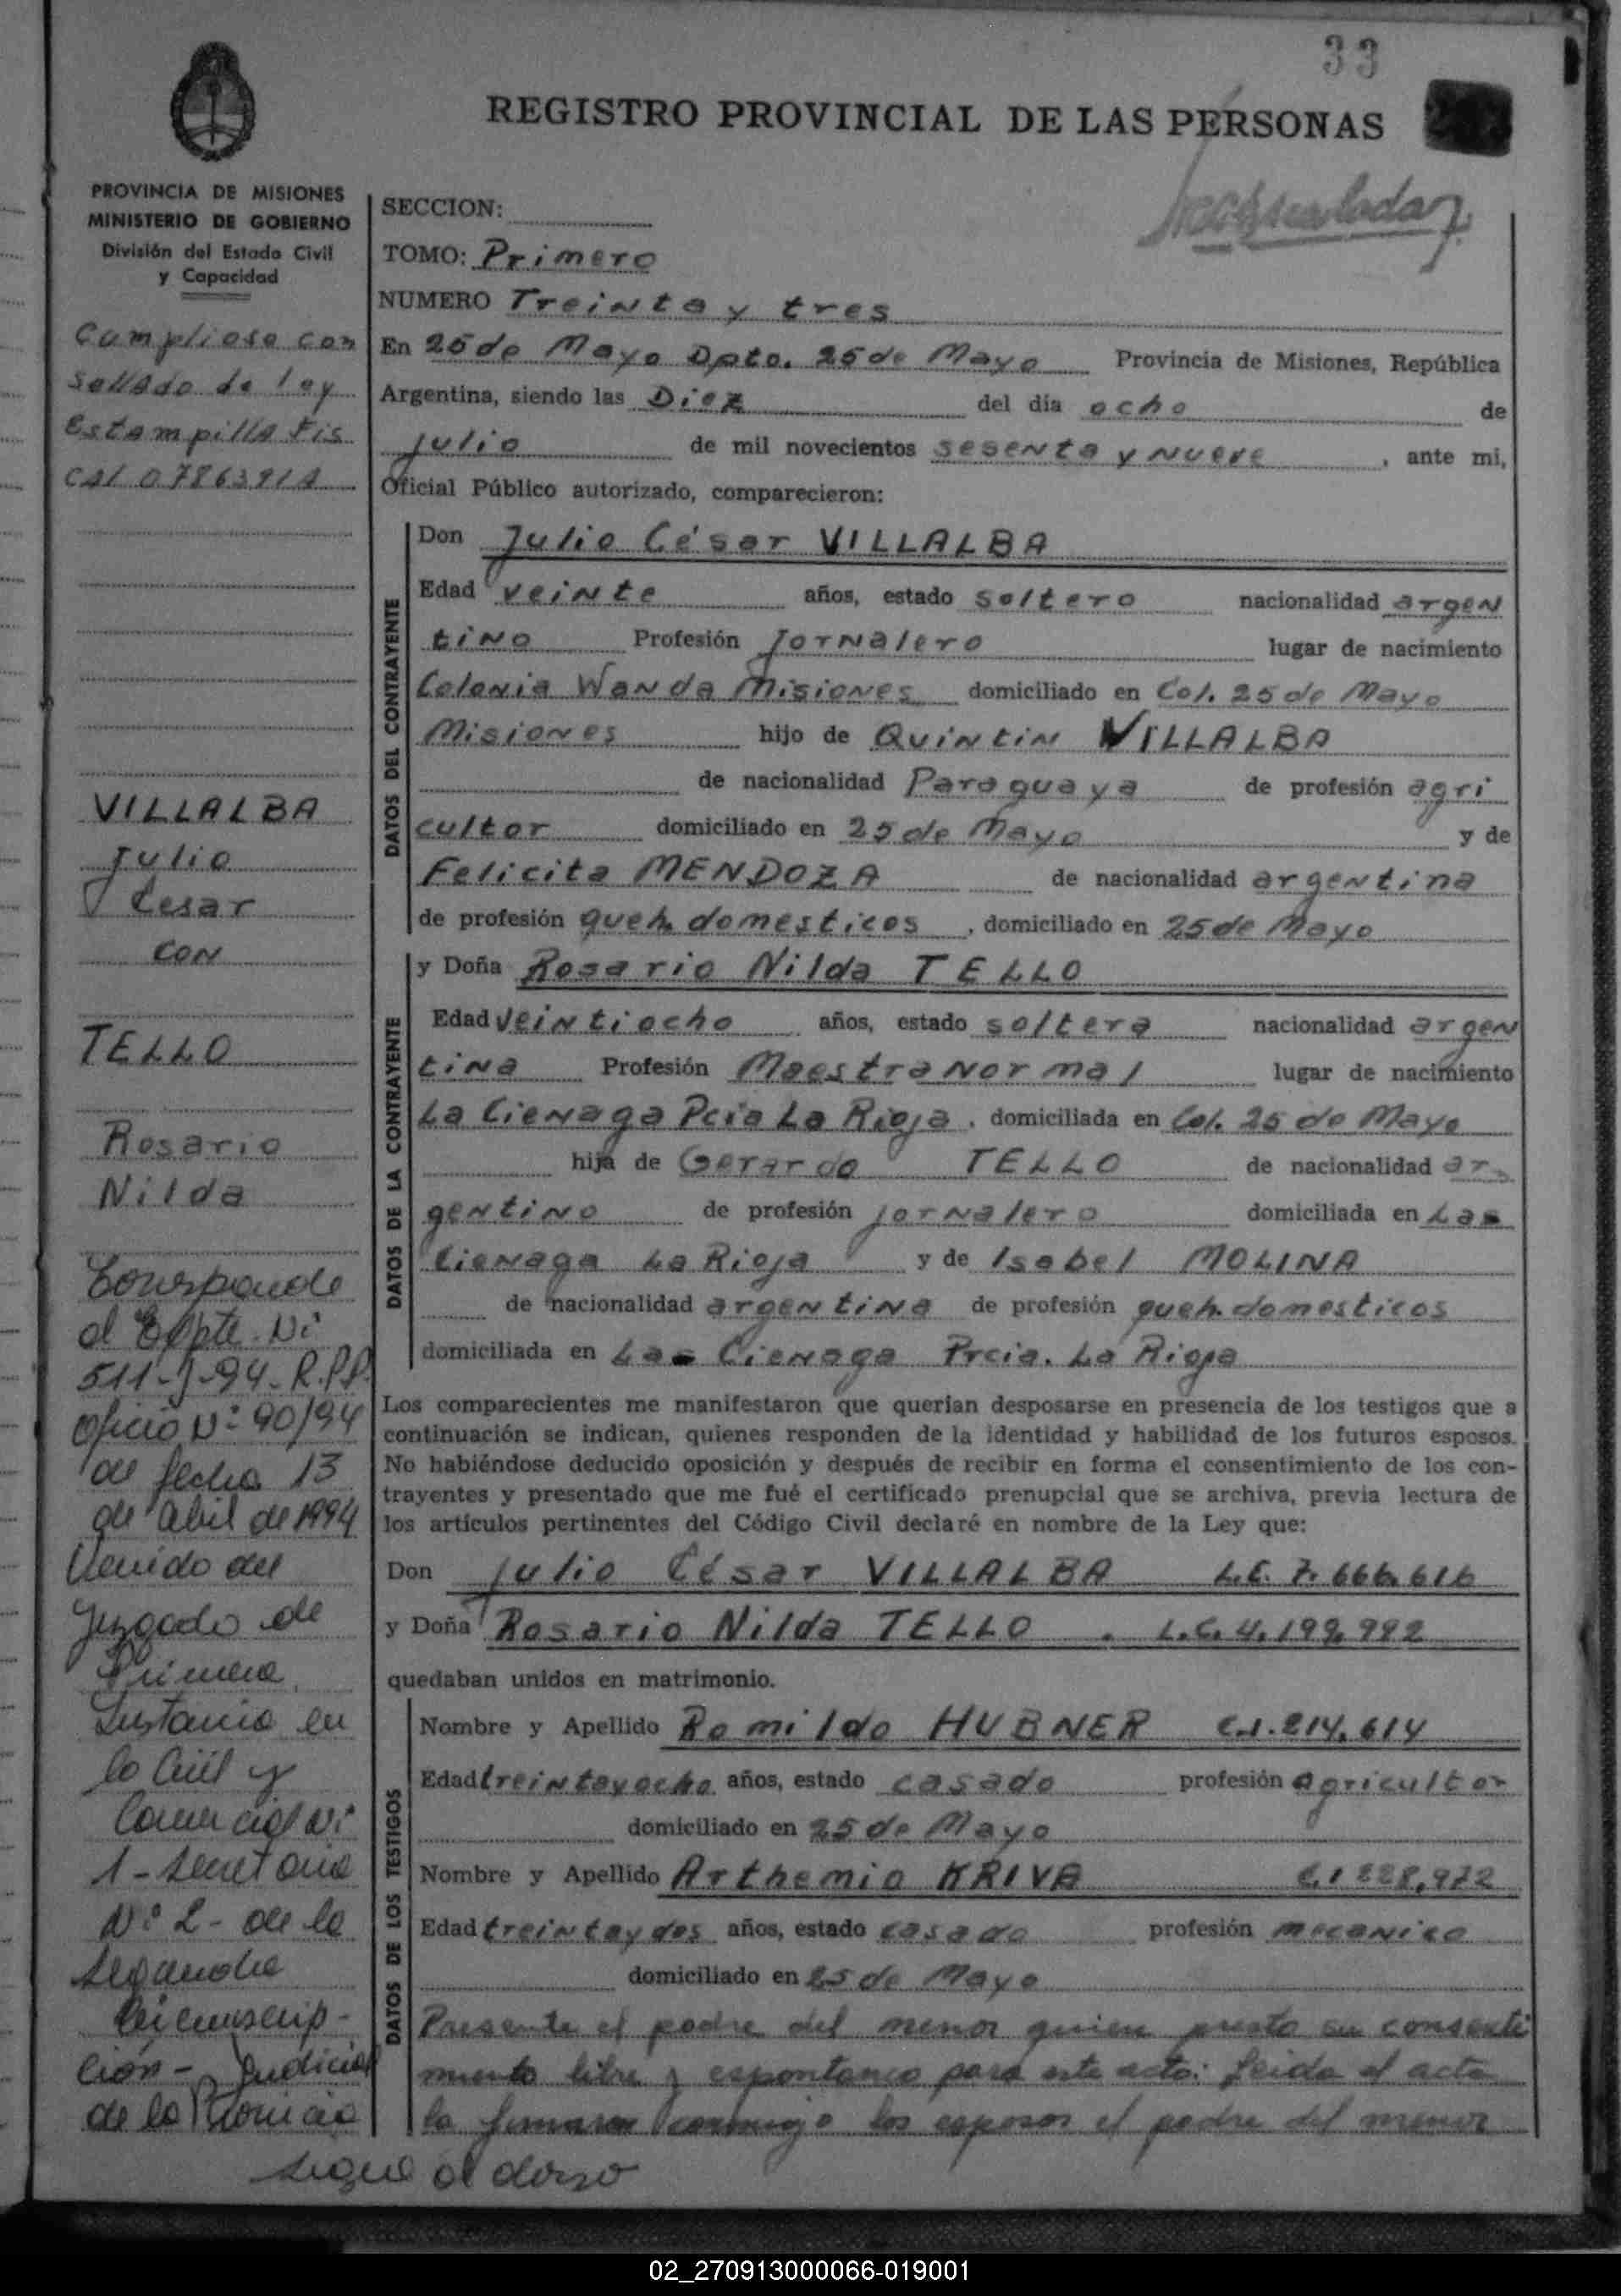 33
REGISTRO PROVINCIAL DE LAS PERSONAS
PROVINCIA DE MISIONES
MINISTERIO DE GOBIERNO
División del Estado Civil
y Capacidad
Cumpliose con
sellado de ley
Estampilla Fis
cal
VILLALBA
Julio
Cesar
CON
TELLO
Rosario
Nilda
Corresponde
al Expte. Nº
511-J-94-R.P.P.
Oficio Nº 90/94
de fecha 13
de abril de 1994
Venido del
Juzgado de
Primera
Instancia en
lo Civil y
Comercial Nº
1 - Secretaria
Nº 2 - de la
Segunda
Circunscrip-
ción - Judicial
de la Provincia
sigue al dorso
SECCION:
TOMO: Primero
NUMERO Treinta y tres
En 25 de Mayo Dpto. 25 de Mayo Provincia de Misiones, República
Argentina, siendo las Diez del día ocho de
julio de mil novecientos sesenta y nueve, ante mi,
Oficial Público autorizado, comparecieron:
DATOS DEL CONTRAYENTE
Don Julio César VILLALBA
Edad veinte años, estado soltero nacionalidad argen
tino Profesión Jornalero lugar de nacimiento
Colonia Wanda Misiones domiciliado en Col. 25 de Mayo
Misiones hijo de Quintin VILLALBA
de nacionalidad Paraguaya de profesión agri
cultor domiciliado en 25 de Mayo y de
Felicita MENDOZA de nacionalidad argentina
de profesión queh. domesticos, domiciliado en 25 de Mayo
DATOS DE LA CONTRAYENTE
y Doña Rosario Nilda TELLO
Edad veintiocho años, estado soltera nacionalidad argen
tina Profesión Maestra Normal lugar de nacimiento
La Cienaga Pcia La Rioja, domiciliada en Col. 25 de Mayo
hija de Gerardo TELLO de nacionalidad ar
gentino de profesión jornalero domiciliada en La
Cienaga La Rioja y de Isabel MOLINA
de nacionalidad argentina de profesión queh. domesticos
domiciliada en La Cienaga Prcia. La Rioja
Los comparecientes me manifestaron que querían desposarse en presencia de los testigos que a
continuación se indican, quienes responden de la identidad y habilidad de los futuros esposos.
No habiéndose deducido oposición y después de recibir en forma el consentimiento de los con-
trayentes y presentado que me fué el certificado prenupcial que se archiva, previa lectura de
los artículos pertinentes del Código Civil declaré en nombre de la Ley que:
Don Julio César VILLALBA L.E. 7.666.616
y Doña Rosario Nilda TELLO. L.C. 4.199.992
quedaban unidos en matrimonio.
DATOS DE LOS TESTIGOS
Nombre y Apellido Romildo HUBNER C.I. 214.614
Edad treinta y ocho años, estado casado profesión agricultor
domiciliado en 25 de Mayo
Nombre y Apellido Arthemio KRIVA C.I 228.972
Edad treinta y dos años, estado casado profesión mecanico
domiciliado en 25 de Mayo
Presente el padre del menor quien presta su consenti
miento libre y espontaneo para este acto: Leida el acta
la firmaron conmigo los esposos el padre del menor
02_270913000066-019001